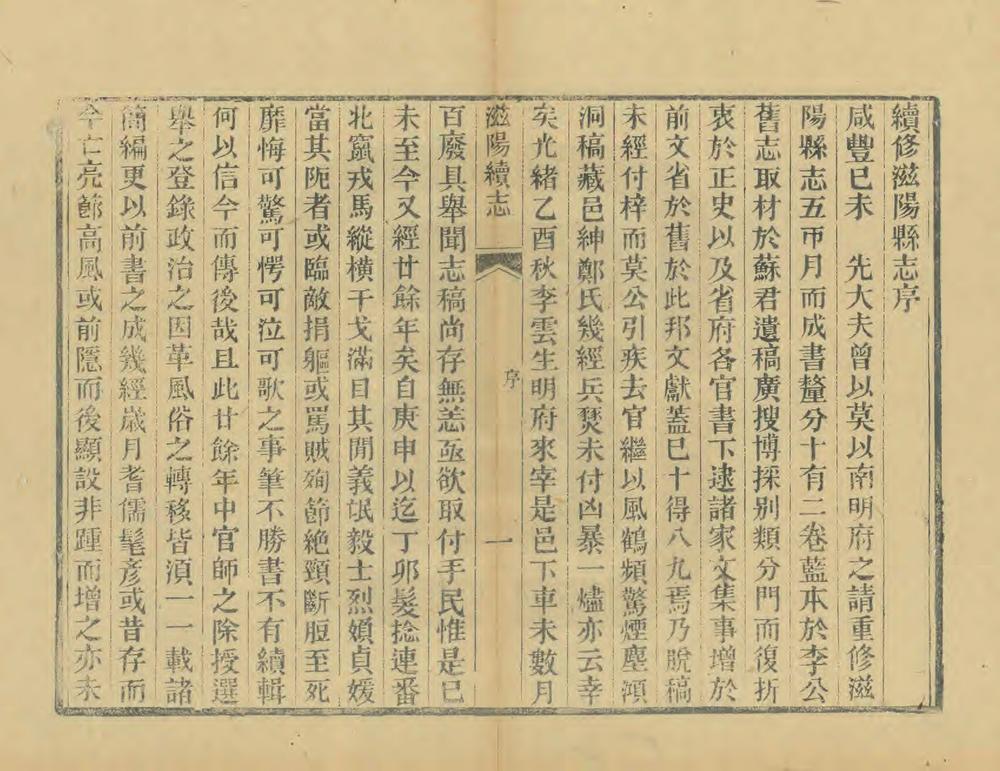 續修滋陽縣志序
咸豐已未　先大夫曾以莫以南明府之請重修滋
陽縣志五帀月而成書釐分十有二卷藍本於李公
舊志取材於蘇君遺稿廣搜博採别類分門而復折
衷於正史以及省府各官書下逮諸家文集事增於
前文省於舊於此邦文獻蓋已十得八九焉乃脫稿
未經付梓而莫公引疾去官繼以風鶴頻驚煙塵澒
洞稿藏邑紳鄭氏幾經兵燹未付凶暴一爐亦云幸
矣光緒乙酉秋李雲生明府來宰是邑下車未數月
滋陽續志
序
一
百廢具舉聞志稿尚存無恙亟欲取付手民惟是已
未至今又經廿餘年矣自庚申以迄丁卯髮捻連番
北竄戎馬縱橫干戈滿目其閒義氓毅士烈媍貞媛
當其阨者或臨敵捐軀或罵賊殉節絶頸斷脰至死
靡悔可驚可愕可泣可歌之事筆不勝書不有續輯
何以信今而傳後哉且此廿餘年中官師之除授選
舉之登錄政治之因革風俗之轉移皆須一一載諸
簡編更以前書之成幾經歲月耆儒髦彥或昔存而
今亡亮節高風或前隱而後顯設非踵而增之亦未